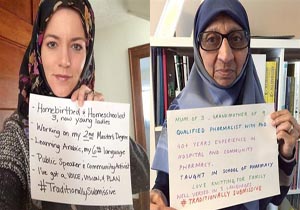 Homebirthed + Homeschooled
3, now young ladies
Working on my 2nd Masters Degree
Learning Arabic, my 6th language
Public Speaker & Community Activist
I've got a VOICE, VISION & PLAN
#TraditionallySubmissive
MUM OF 3, GRANDMOTHER OF 9
QUALIFIED PHARMACIST WITH
40+ YEARS EXPERIENCE IN
HOSPITAL AND COMMUNITY
PHARMACY.
TAUGHT IN SCHOOL OF PHARMACY
LOVE KNITTING FOR FAMILY
WELL VERSED IN LANGUAGES
#TRADITIONALLY SUBMISSIVE